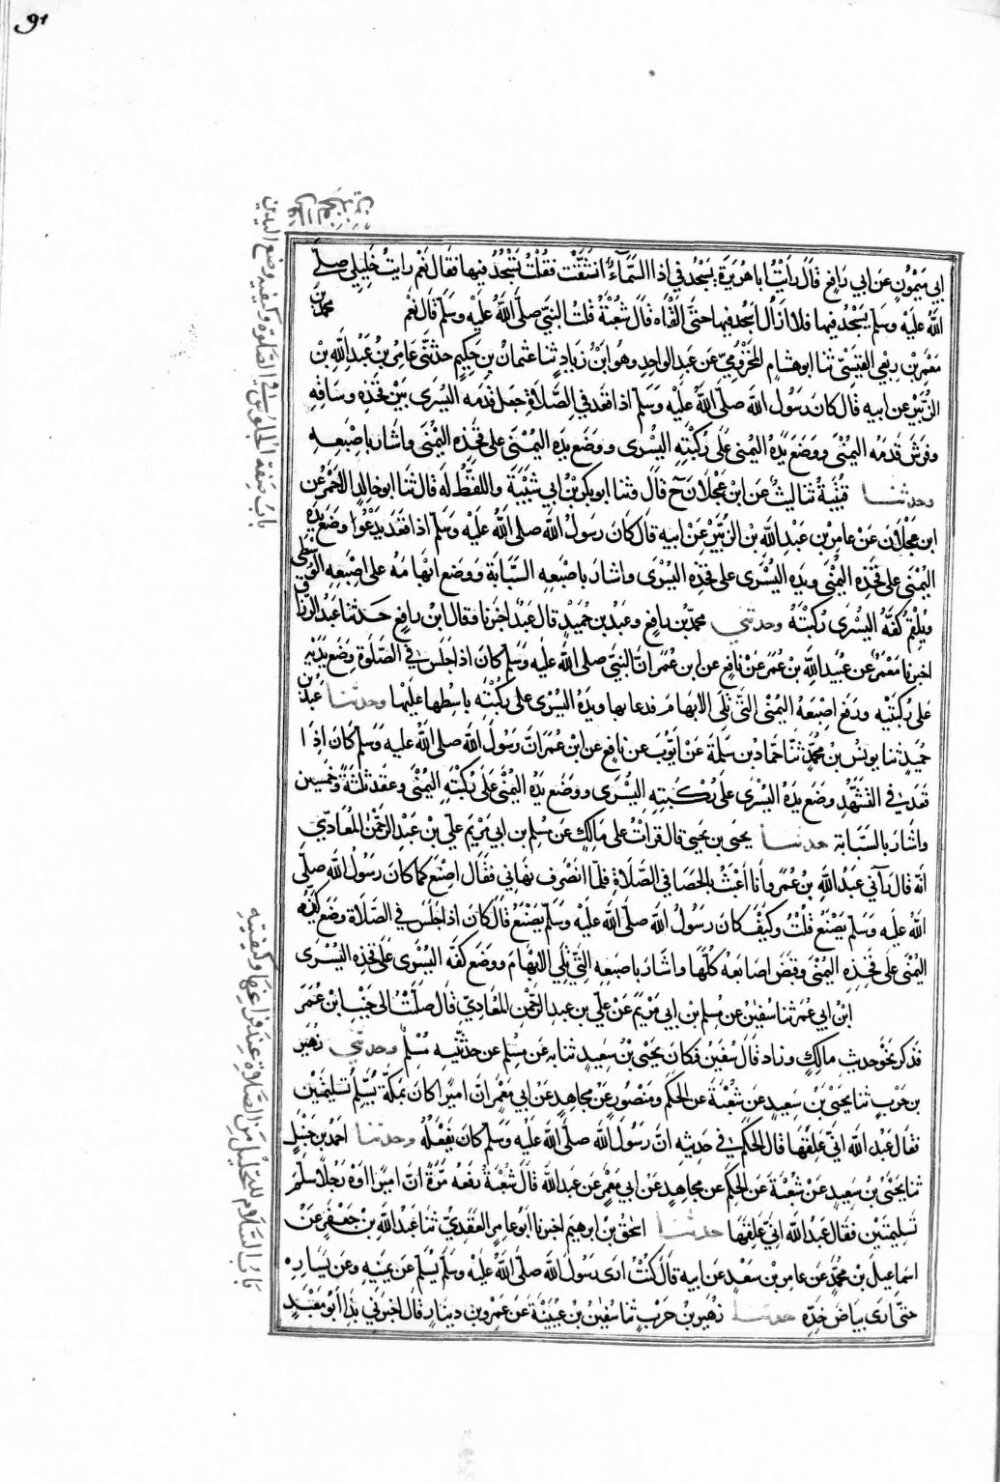 ٩١
باب صفة الجلوس في الصلوة وكيفية وضع اليدين
ابي ميمون عن ابي رافع قال رايت ابا هريرة يسجد في اذا السماء انشقت فقلت تسجد فيها فقال نعم رايت خليلي صلى
الله عليه وسلم يسجد فيها فلا ازال اسجد فيها حتى القاه قال شعبة قلت النبي صلى الله عليه وسلم قال نعم محمد بن
معمر بن ربعي القيسي ثنا ابو هشام المخزومي عن عبد الواحد وهو ابن زياد ثنا عثمان بن حكيم حدثني عامر بن عبد الله بن
الزبير عن ابيه قال كان رسول الله صلى الله عليه وسلم اذا قعد في الصلاة جعل قدمه اليسرى بين فخذه وساقه
وفرش قدمه اليمنى ووضع يده اليمنى على ركبته اليسرى ووضع يده اليمنى على فخذه اليمنى واشار باصبعه
وحدثنا قتيبة ثنا ليث عن ابن عجلان ح قال وثنا ابو بكر بن ابي شيبة واللفظ له قال ثنا ابو خالد الاحمر عن
ابن عجلان عن عامر بن عبد الله بن الزبير عن ابيه قال كان رسول الله صلى الله عليه وسلم اذا قعد يدعوا وضع يده
اليمنى على فخذه اليمنى ويده اليسرى على فخذه اليسرى واشار باصبعه السبابة ووضع ابهامه على اصبعه الوسطى
ويلقم كفه اليسرى ركبته وحدثني محمد بن رافع وعبد بن حميد قال عبد اخبرنا وقال ابن رافع حدثنا عبد الرزاق
اخبرنا معمر عن عبيد الله بن عمر عن نافع عن ابن عمر ان النبي صلى الله عليه وسلم كان اذا جلس في الصلوة وضع يديه
على ركبتيه ورفع اصبعه اليمنى التي تلي الابهام فدعا بها ويده اليسرى على ركبته باسطها عليها وحدثنا عبد بن
حميد ثنا يونس بن محمد ثنا حماد بن سلمة عن ايوب عن نافع عن ابن عمر ان رسول الله صلى الله عليه وسلم كان اذا
قعد في التشهد وضع يده اليسرى على ركبته اليسرى ووضع يده اليمنى على ركبته اليمنى وعقد ثلثة وخمسين
واشار بالسبابة حدثنا يحيى بن يحيى قال قرات على مالك عن مسلم بن ابي مريم علي بن عبد الرحمن المعادي
انه قال رآني عبد الله بن عمر وانا اعبث بالحصا في الصلاة فلما انصرف نهاني فقال اصنع كما كان رسول الله صلى
الله عليه وسلم يصنع قلت وكيف كان رسول الله صلى الله عليه وسلم يصنع قال كان اذا جلس في الصلاة وضع كفه
اليمنى على فخذه اليمنى وقبض اصابعه كلها واشار باصبعه التي تلي الابهام ووضع كفه اليسرى على فخذه اليسرى
ابن ابي عمر ثنا سفين عن مسلم بن ابي مريم عن علي بن عبد الرحمن المعادي قال صليت الى جنب ابن عمر
فذكر نحو حديث مالك وزاد قال سفين فكان يحيى بن سعيد ثنا به عن مسلم عن حدثنيه مسلم وحدثني زهير
بن حرب ثنا يحيى بن سعيد عن شعبة عن الحكم ومنصور عن مجاهد عن ابي معمر ان اميرا كان بمكة يسلم تسليمتين
فقال عبد الله انى علقها قال الحكم في حديثه ان رسول الله صلى الله عليه وسلم كان يفعله وحدثنا احمد بن حنبل
ثنا يحيى بن سعيد عن شعبة عن الحكم عن مجاهد عن ابي معمر عن عبد الله قال شعبة رفعه مرة ان اميرا اوه رجلا سلم
تسليمتين فقال عبد الله انى علقها حدثنا اسحق بن ابرهيم اخبرنا ابو عامر العقدي ثنا عبد الله بن جعفر عن
اسماعيل بن محمد عن عامر بن سعد عن ابيه قال كنت ارى رسول الله صلى الله عليه وسلم يسلم عن يمينه وعن يساره
حتى ارى بياض خده حدثنا زهير بن حرب ثنا سفين بن عيينة عن عمرو بن دينار قال اخبرني بذا ابو معبد
باب السلام للتحليل من الصلاة عند فراغها وكيفيته